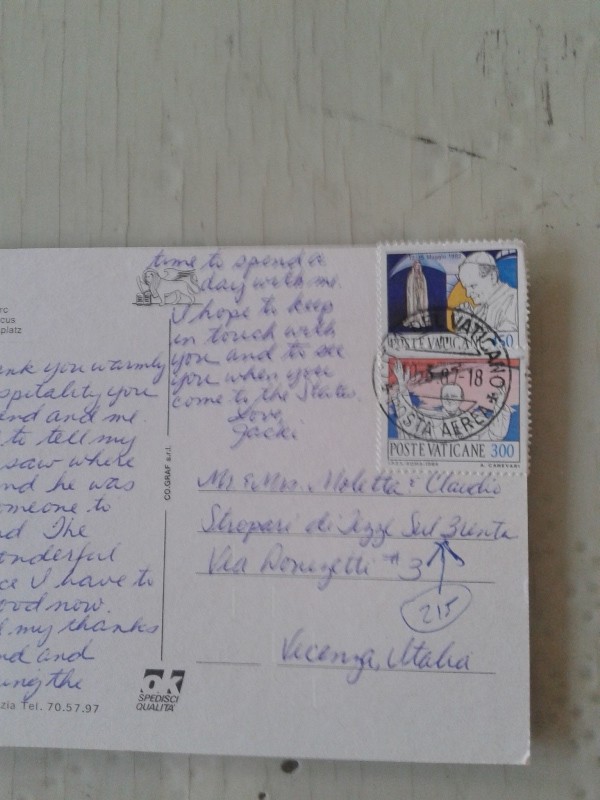 rc
cus
platz
nk you warmly
spitality you
end and me.
to tell my
saw where
and he was
someone to
nd The
onderful
ce I have to
ood now.
l my thanks
nd and
uring the
zia Tel. 70.57.97
time to spend a
day with me.
I hope to keep
in touch with
you and to see
you when you
come to the States.
Love,
Jacki
CO.GRAF s.r.l.
ok
SPEDISCI
QUALITÀ
POSTE VATICANE 50
POSTE VATICANE 300
I.P.Z.S. ROMA
A. CANEVARI
VATICANO
-18
POSTA AEREA
Mr & Mrs. Moletta Claudio
Stropari di Tezze Sul Brenta
Via Donizetti # 3
215
Vicenza, Italia